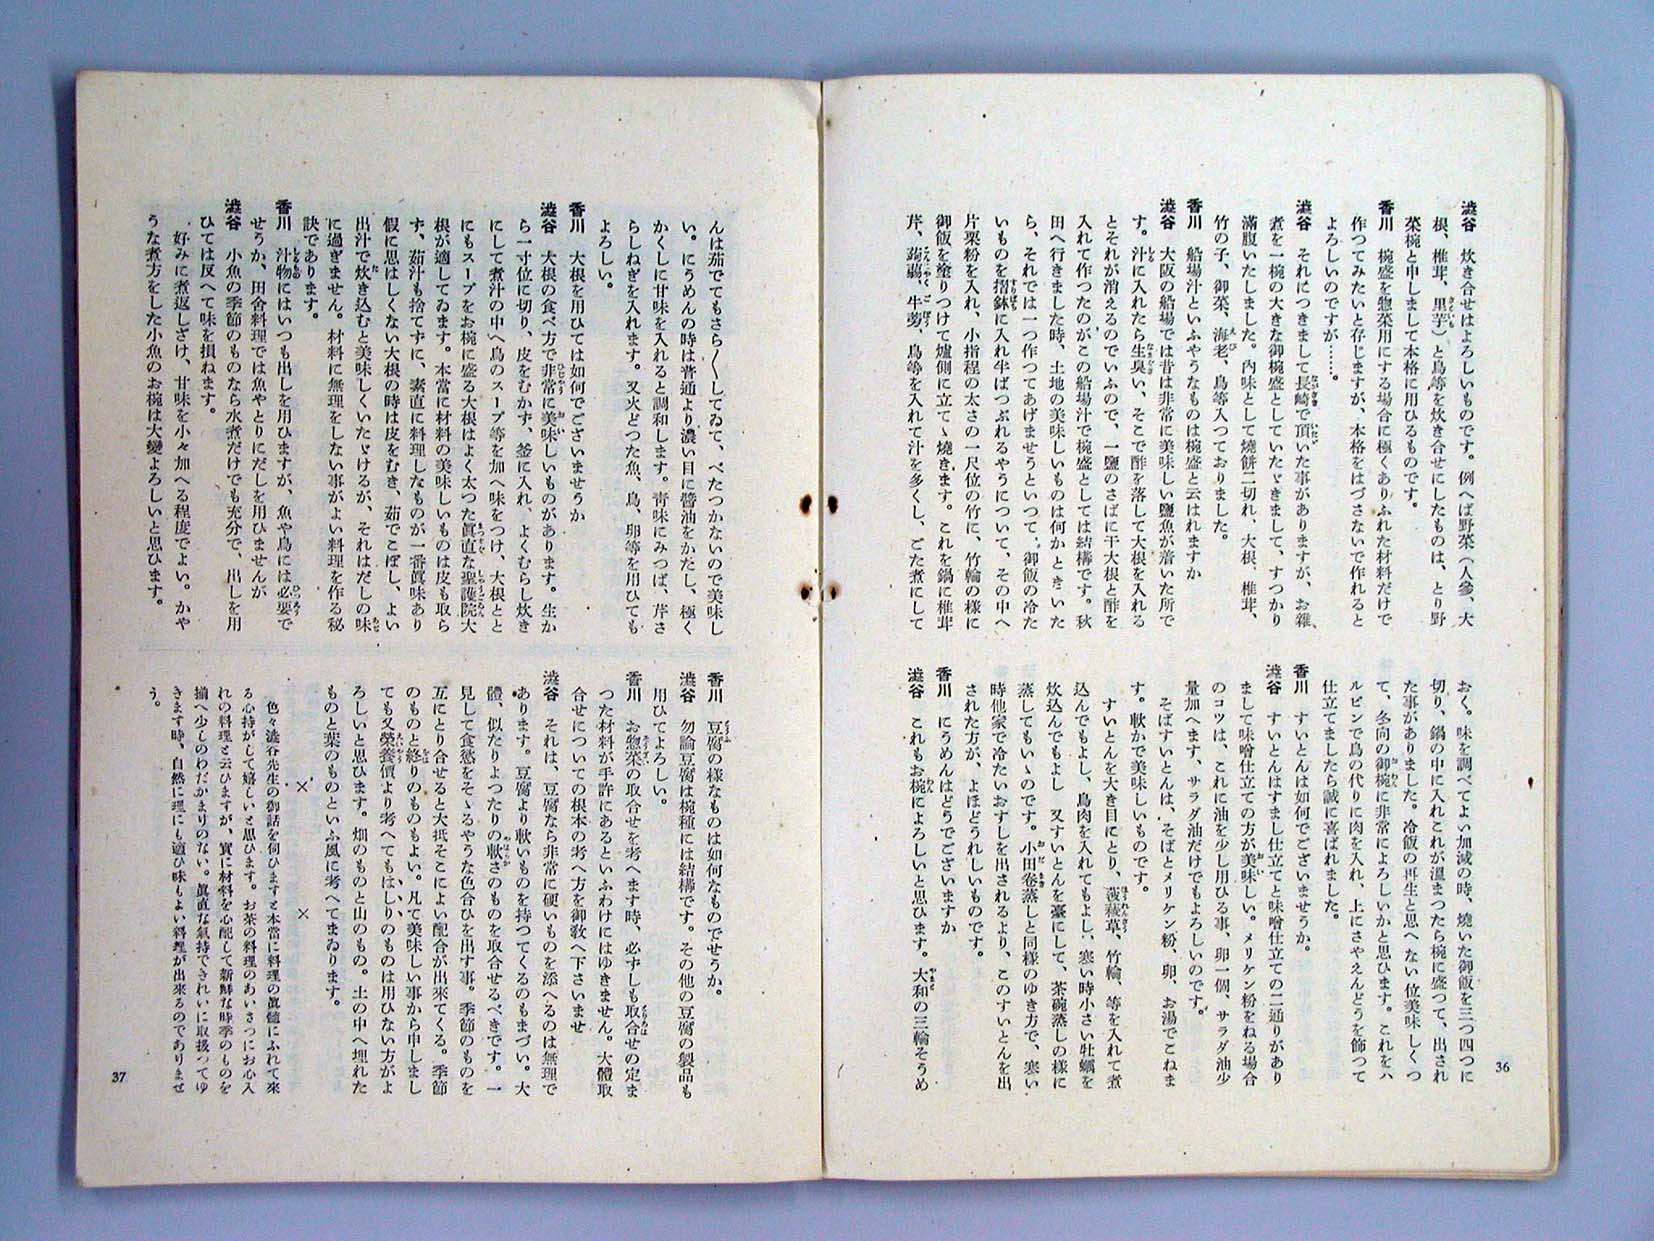 澁谷　炊き合せはよろしいものです。例へば野菜（人參、大
根、椎茸、里芋）と鳥等を炊き合せにしたものは、とり野
菜椀と申しまして本格に用ひるものです。
香川　椀盛を惣菜用にする場合に極くありふれた材料だけで
作つてみたいと存じますが、本格をはづさないで作れると
よろしいのですが……。
澁谷　それにつきまして長崎で頂いた事がありますが、お雜
煮を一椀の大きな御椀盛としていたゞきまして、すつかり
滿腹いたしました。內味として燒餅二切れ、大根、椎茸、
竹の子、御菜、海老、鳥等入つておりました。
香川　船場汁といふやうなものは椀盛と云はれますか
澁谷　大阪の船場では昔は非常に美味しい鹽魚が着いた所で
す。汁に入れたら生臭い、そこで酢を落して大根を入れる
とそれが消えるのでいふので、一鹽のさばに干大根と酢を
入れて作つたのがこの船場汁で椀盛としては結構です。秋
田へ行きました時、土地の美味しいものは何かときいた
ら、それでは一つ作つてあげませうといつて、御飯の冷た
いものを摺鉢に入れ半ばつぶれるやうについて、その中へ
片栗粉を入れ、小指程の太さの一尺位の竹に、竹輪の樣に
御飯を塗りつけて爐側に立てゝ燒きます。これを鍋に椎茸
芹、蒟蒻、牛蒡、鳥等を入れて汁を多くし、ごた煮にして
おく。味を調べてよい加減の時、燒いた御飯を三つ四つに
切り、鍋の中に入れこれが溫まつたら椀に盛つて、出され
た事がありました。冷飯の再生と思へない位美味しくつ
て、冬向の御椀に非常によろしいかと思ひます。これをハ
ルピンで鳥の代りに肉を入れ、上にさやえんどうを飾つて
仕立てましたら誠に喜ばれました。
香川　すいとんは如何でございませうか。
澁谷　すいとんはすまし仕立てと味噌仕立ての二通りがあり
まして味噌仕立ての方が美味しい。メリケン粉をねる場合
のコツは、これに油を少し用ひる事、卵一個、サラダ油少
量加へます、サラダ油だけでもよろしいのです。
そばすいとんは、そばとメリケン粉、卵、お湯でこねま
す。軟かで美味しいものです。
すいとんを大き目にとり、菠薐草、竹輪、等を入れて煮
込んでもよし、鳥肉を入れてもよし、寒い時小さい牡蠣を
炊込んでもよし　又すいとんを臺にして、茶碗蒸しの樣に
蒸してもいゝのです。小田卷蒸しと同樣のゆき方で、寒い
時他家で冷たいおすしを出されるより、このすいとんを出
された方が、よほどうれしいものです。
香川　にうめんはどうでございますか
澁谷　これもお椀によろしいと思ひます。大和の三輪そうめ
36
んは茹でてもさら〱してゐて、べたつかないので美味し
い。にうめんの時は普通より濃い目に醬油をかたし、極く
かくしに甘味を入れると調和します。靑味にみつば、芹さ
らしねぎを入れます。又火どつた魚、鳥、卵等を用ひても
よろしい。
香川　大根を用ひては如何でございませうか
澁谷　大根の食べ方で非常に美味しいものがあります。生か
ら一寸位に切り、皮をむかず、釜に入れ、よくむらし炊き
にして煮汁の中へ鳥のスープ等を加へ味をつけ、大根とと
にもスープをお椀に盛る大根はよく太つた眞直な聖護院大
根が適してゐます。本當に材料の美味しいものは皮も取ら
ず、茹汁も捨てずに、素直に料理したものが一番眞味あり
假に思はしくない大根の時は皮をむき、茹でこぼし、よい
出汁で炊き込むと美味しくいたゞけるが、それはだしの味
に過ぎません。材料に無理をしない事がよい料理を作る秘
訣であります。
香川　汁物にはいつも出しを用ひますが、魚や鳥には必要で
せうか、田舍料理では魚やとりにだしを用ひませんが
澁谷　小魚の季節のものなら水煮だけでも充分で、出しを用
ひては反へて味を損ねます。
好みに煮返しざけ、甘味を小々加へる程度でよい。かや
うな煮方をした小魚のお椀は大變よろしいと思ひます。
香川　豆腐の樣なものは如何なものでせうか。
澁谷　勿論豆腐は椀種には結構です。その他の豆腐の製品も
用ひてよろしい。
香川　お惣菜の取合せを考へます時、必ずしも取合せの定ま
つた材料が手許にあるといふわけにはゆきません。大體取
合せについての根本の考へ方を御敎へ下さいませ
澁谷　それは、豆腐なら非常に硬いものを添へるのは無理で
あります。豆腐より軟いものを持つてくるのもまづい。大
體、似たりよつたりの軟さのものを取合せるべきです。一
見して食慾をそゝるやうな色合ひを出す事。季節のものを
互にとり合せると大抵そこによい配合が出來てくる。季節
のものと終りのものもよい。凡て美味しい事から申しまし
ても又榮養價より考へてもはしりのものは用ひない方がよ
ろしいと思ひます。畑のものと山のもの。土の中へ埋れた
ものと葉のものといふ風に考へてまゐります。
×　　×
色々澁谷先生の御話を伺ひますと本當に料理の眞髓にふれて來
る心持がして嬉しいと思ひます。お茶の料理のあいさつにお心入
れの料理と云ひますが、實に材料を心配して新鮮な時季のものを
揃へ少しのわだかまりのない。眞直な氣持できれいに取扱つてゆ
きます時、自然に理にも適ひ味もよい料理が出來るのでありませ
う。
37